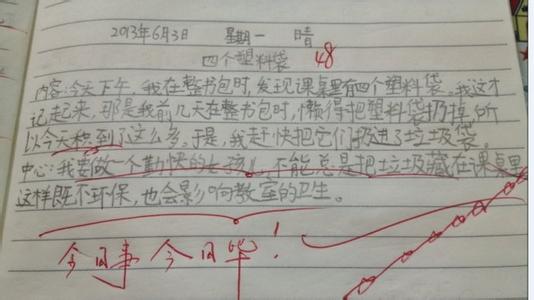 2013年6月3日 星期一 晴
四个塑料袋 48
内容:今天下午,我在整书包时,发现课桌里有四个塑料袋。我这才
记起来,那是我前几天在整书包时,懒得把塑料袋扔掉,所
以今天积到了这么多。于是,我赶快把它们扔进了垃圾袋。
中心:我要做一个勤快的女孩儿,不能总是把垃圾藏在课桌里
这样既不环保,也会影响教室的卫生。
今日事 今日毕!